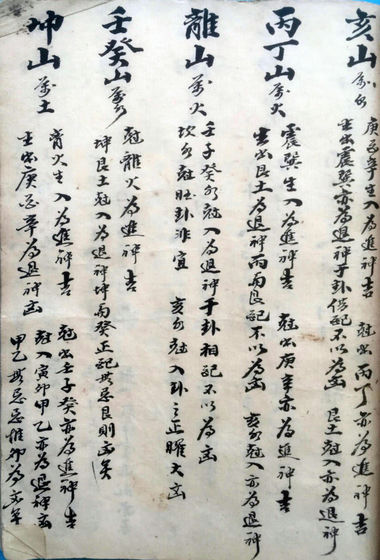 亥山 屬水
庚酉辛生入為進神吉 尅出丙丁亦為進神吉
生出震巽亦為退神于卦俱配不以為凶 艮土尅入亦為退神
丙丁山 屬火
震巽生入為進神吉 尅出庚辛亦為進神吉
生出艮土為退神丙與艮配不以為凶 亥水尅入亦為退神
離山 屬火
壬子癸水尅入為退神于卦相配不以為凶
坎水尅旺卦非宜 亥水尅入卦之正曜大凶
壬癸山 屬水
尅離火為進神吉
坤艮土尅入為退神坤與癸正配無忌艮則凶矣
坤山 屬土
火生入為進神吉 尅出壬子癸亦為進神吉
生出庚酉辛為退神凶 尅入寅卯甲乙亦為退神凶
甲乙無忌惟卯為凶